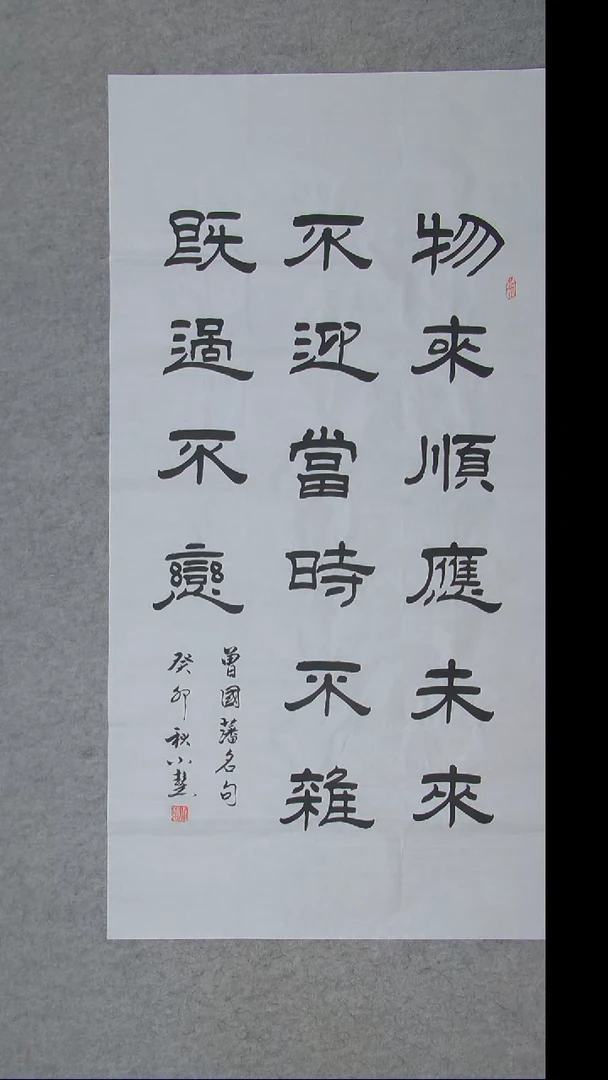 物來順應未來
不迎當時不雜
既過不戀
曾國藩名句
癸卯秋小